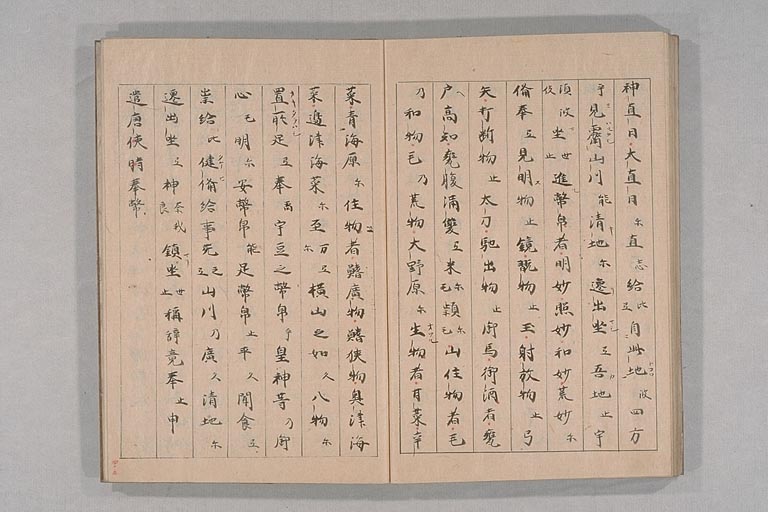 神直日大直日尓直志給比弖自此地波四方
乎見霽山川能清地尓遷出坐弖吾地止宇
須波伎坐世止進幣帛者明妙照妙和妙荒妙尓
俻奉弖見明物止鏡翫物止玉射放物止弓
矢打断物止太刀馳出物止御馬御酒者瓱
戸高知瓱腹満雙弖米尓毛頴尓毛山住物者毛
乃和物毛乃荒物大野原尓生物者甘菜辛
菜青海原尓住物者鰭廣物鰭狭物奥津海
菜邊津海菜尓至万弖尓横山之如久八物尓
置所足弖奉留宇豆之幣帛乎皇神等乃御
心毛明尓安幣帛能足幣帛止平久聞食弖
祟給比健俻給事无之弖山川乃廣久清地尓
遷出坐弖神奈我良鎮坐世止稱辞竟奉止申
遣唐使時奉幣